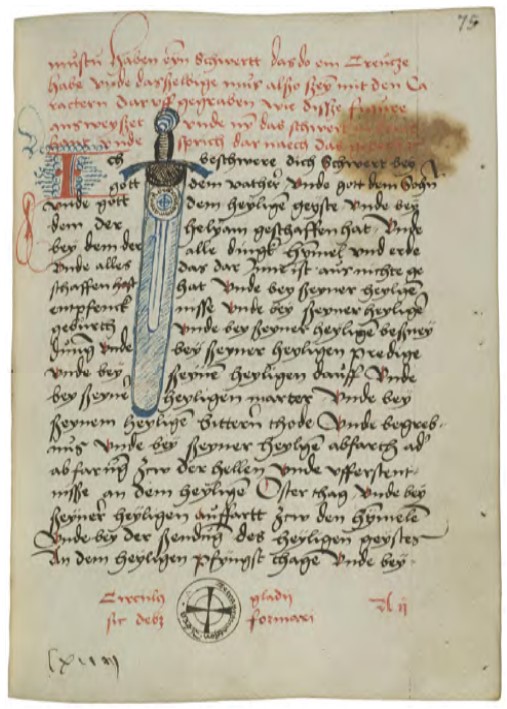 75
mustu haben eyn Schwertt das do ein Creutze
habe vnde dasselbige mus also seyn mit den Ca
ractern dar vff gegraben wie disse figure
ausweyset vnde ny das schwert
vnde sprich dar naech das
Ich beschwere dich Schwert bey
gott dem vather vnde gott dem Sohn
vnde gott dem heyligen geyste vnde bey
dem der helyam geschaffen hat vnde
bey dem der alle dingk hymel vnd erde
vnde alles das dar Inne ist aus nichte ge
schaffen hat vnde bey seyner heyligen
entpfenck nisse vnde bey seyner heylige
geburth vnde bey seyner heyligen besney
dung vnde bey seyner heyligen predige
vnde bey seyner heyligen dauff vnde
bey seyner heyligen marter vnde bey
seynem heyligē bittern thode vnde begreb-
nus vnde bey seyner heylgē abfarth ad
abfarūg zcw der hellen vnde vfferstent-
nisse an dem heyligē Oster thag vnde bey
seyner heyligen auffartt zcw den hymeln
vnde bey der sendūg des heyligen geystes
An dem heyligen pfyngst thage vnde bey
Circulus gladii A ij
sic debz formari